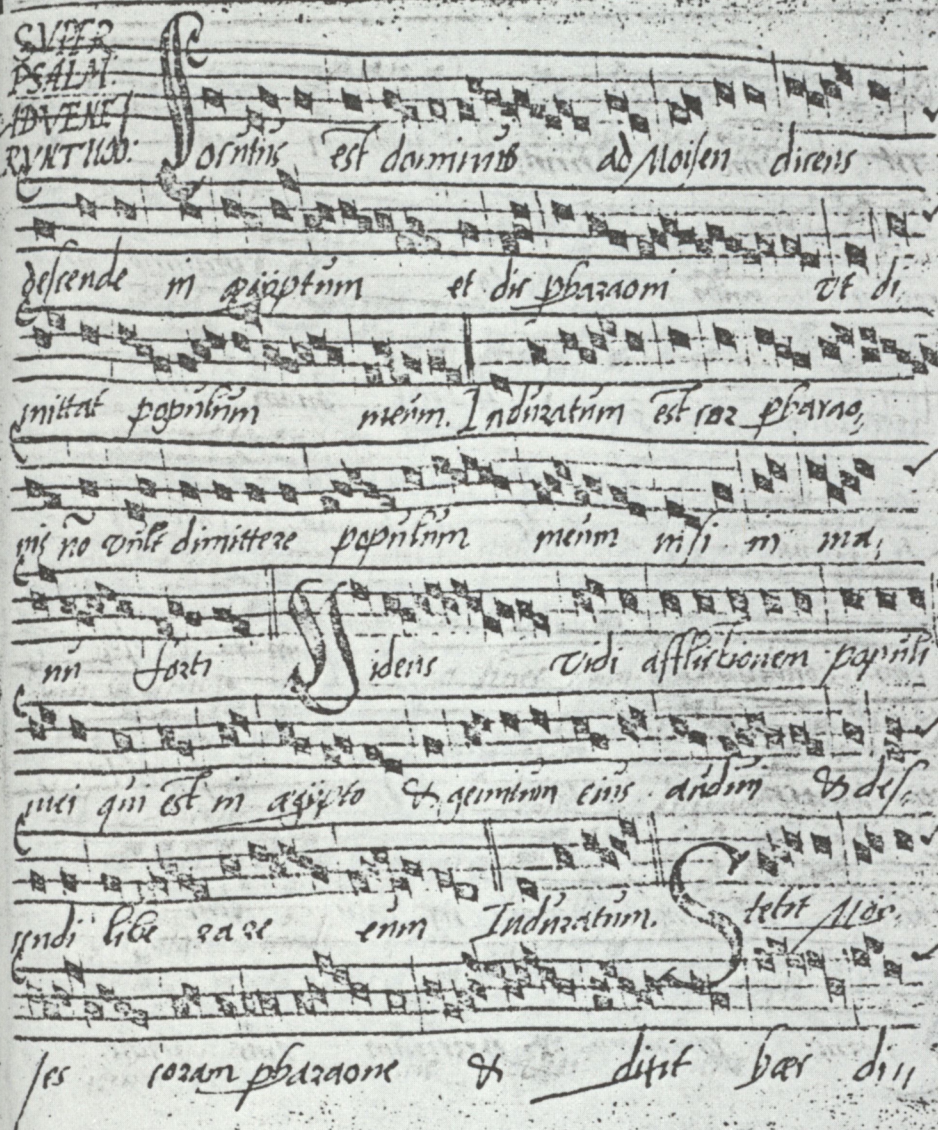 SVPER
PSALM.
ADVENE/
RVNT nob:
Locutus est dominus ad Moisen dicens
descende in egiptum et dic pharaoni vt di,
mittat populum meum. Induratum est cor pharao,
nis nõ vult dimittere populum meum nisi in ma,
nu forti Videns vidi afflictionem populi
mei qui est in egipto & gemitum eius audiui & des,
cendi libe rare eum Induratum. Stetit Moi,
ses coram pharaone & dixit hæc dici